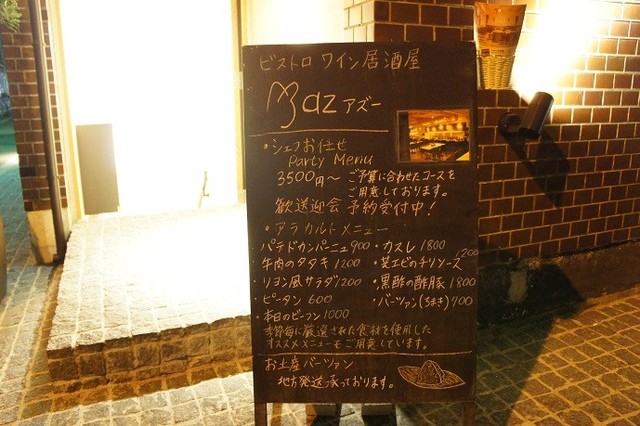 ビストロ ワイン居酒屋
Maz アズー
・シェフお任せ
Party Menu
3500円～ ご予算に合わせたコースを
ご用意しております。
歓送迎会 予約受付中！
・アラカルトメニュー
パテドカンパーニュ 900
牛肉のタタキ 1200
リヨン風サラダ 1200
ピータン 600
本日のビーフン 1000
・カスレ 1800
・芝エビのチリソース 1200
・黒酢の酢豚 1800
・バーツァン(ちまき) 700
季節毎に厳選された食材を使用した
オススメメニューもご用意しています。
お土産バーツァン
地方発送承っております。